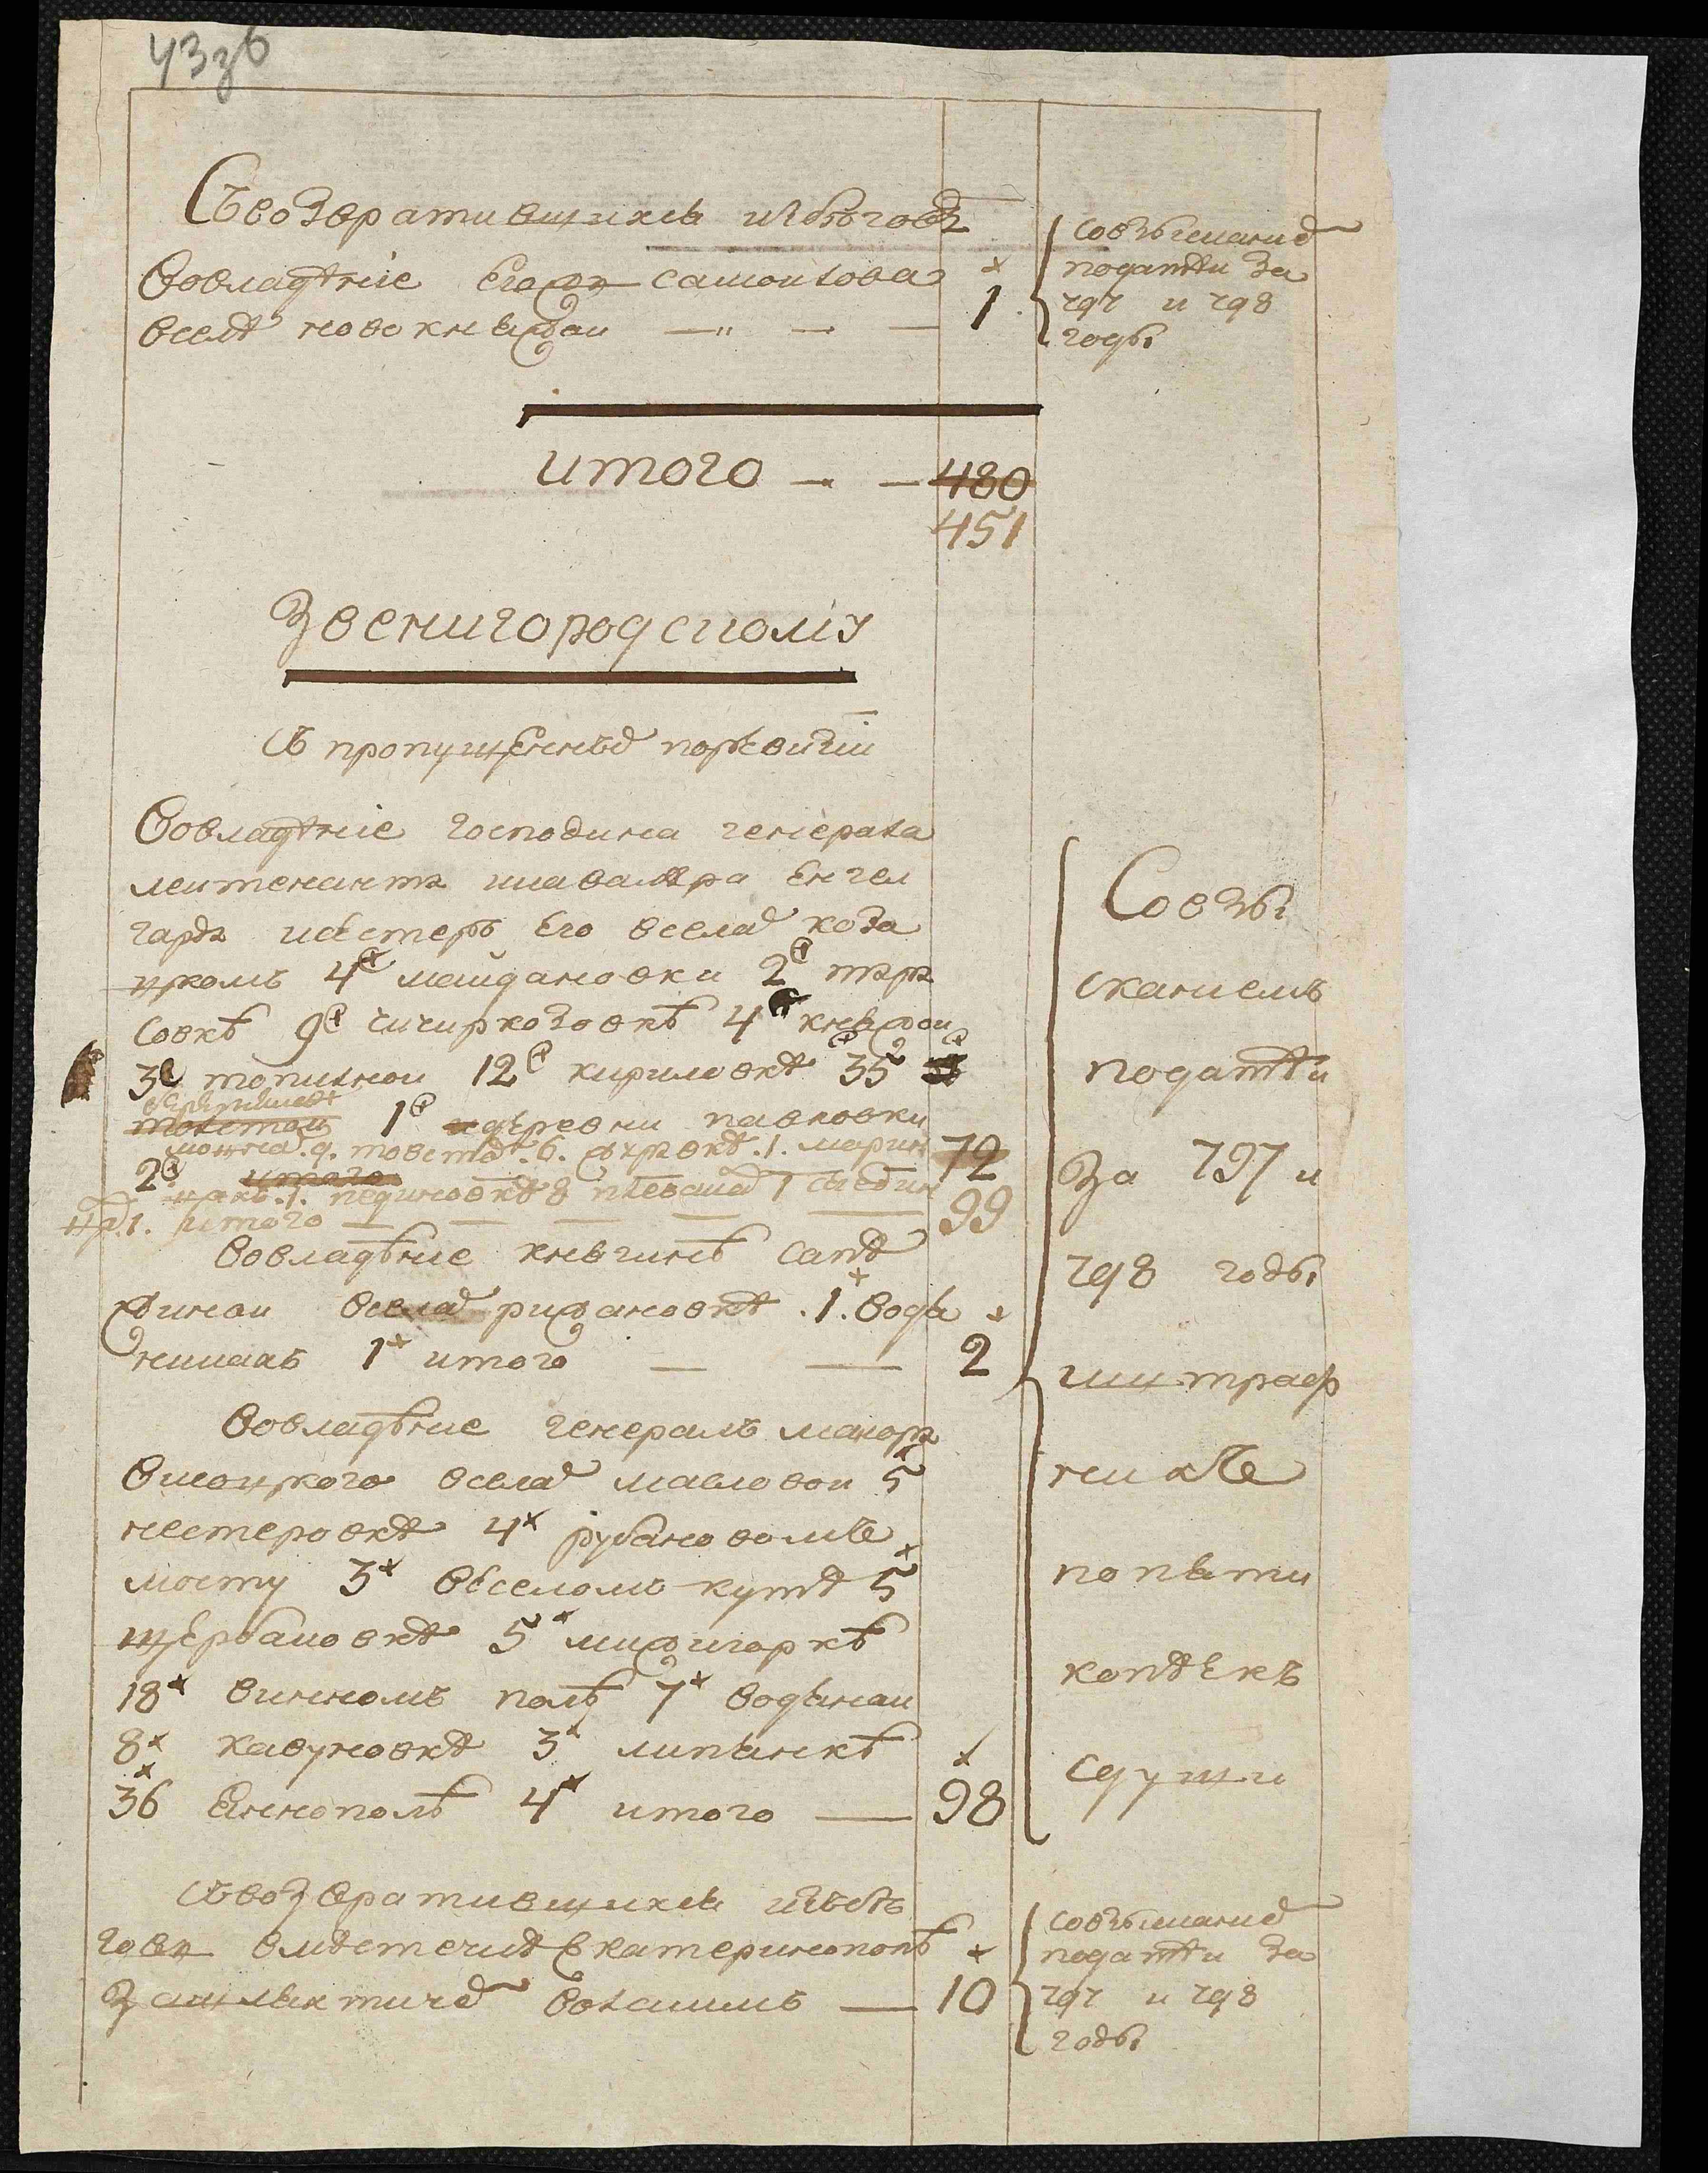 43зв
Съвозвратившихся избѣговъ
Вовладѣніе Егора Самоилова
вселѣ новокняжаи 1
Совзысканиемъ
подати за
797 и 798
годы
итого 480
451
Звенигородскому
Съ пропущенныхъ поревизіи
Вовладѣніе господина генерала
леитенанта икавалера Енгел
гарда исестеръ Его вселахъ коза
цкомъ 4 майдановки 2 тара
совкѣ 9 чичиркозовкѣ 4 княжои
3 топилнои 12 кириловкѣ 35
толстои 1 идѣревни павловки
2 итого 72
99
итого
Вовладѣние княгинѣ Сапѣ
жинои вселахъ рижановкѣ 1. водя
никахъ 1 итого 2
Вовладѣние генералъ маиора
висоцкого вселахъ масловои 5
нестеровкѣ 4 рубановомъ
мосту 3 веселомъ кутѣ 5
щербановкѣ 5 мижигоркѣ
18 винномъ полѣ 7 водянаи
8 кавуновкѣ 3 липянкѣ
36 Еннополѣ 4 итого 98
Совзы
сканиемъ
подати
за 797 и
798 годы
иштраф
ныхъ
попяти
копѣекъ
сдуши
Съвозвратившихся избѣ
говъ вмѣстечкѣ Екатеринополѣ
защляхтича 10
Совзысканиемъ
подати за
797 и 798
годы